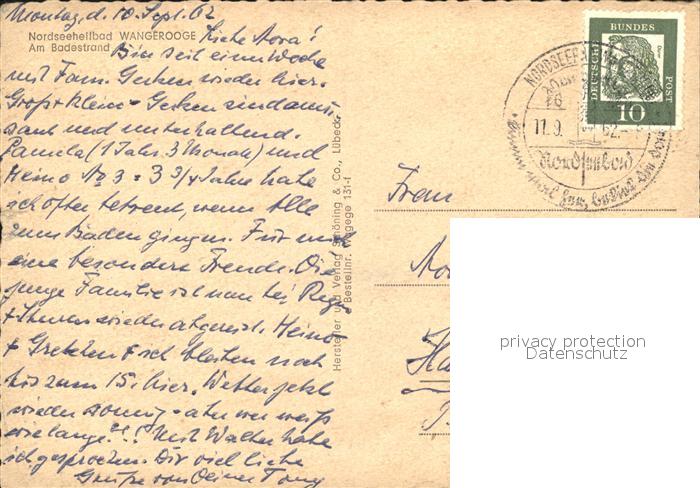 Montag, d. 10. Sept. 62
Nordseeheilbad WANGEROOGE
Am Badestrand
Liebe Nora!
Bin seit einer Woche
mit Fam. Gerken wieder hier.
Gross + Klein - Gerken sind amü-
sant und unterhaltend.
Pamela (1 Jahr 3 Monate) und
Heino No 3 = 3 3/4 Jahre habe
ich öfter betreut, wenn Alle
zum Baden gingen. Für mich
eine besondere Freude. Die
junge Familie ist nun bei Regen
+ Sturm wieder abgereist. Heino
+ Gretchen + ich bleiben noch
bis zum 15. hier. Wetter jetzt
wieder sonnig - aber wer weiß
wie lange?!! Mit Walter habe
ich gesprochen. Dir viel liebe
Grüße von Deiner Tony
Hersteller und Verlag Schöning & Co., Lübeck
Bestellnr. Wagege 131-f
DEUTSCHE BUNDES POST
10
NORDSEE
11.9. 62
Nordseebad
Frau
privacy protection
Datenschutz